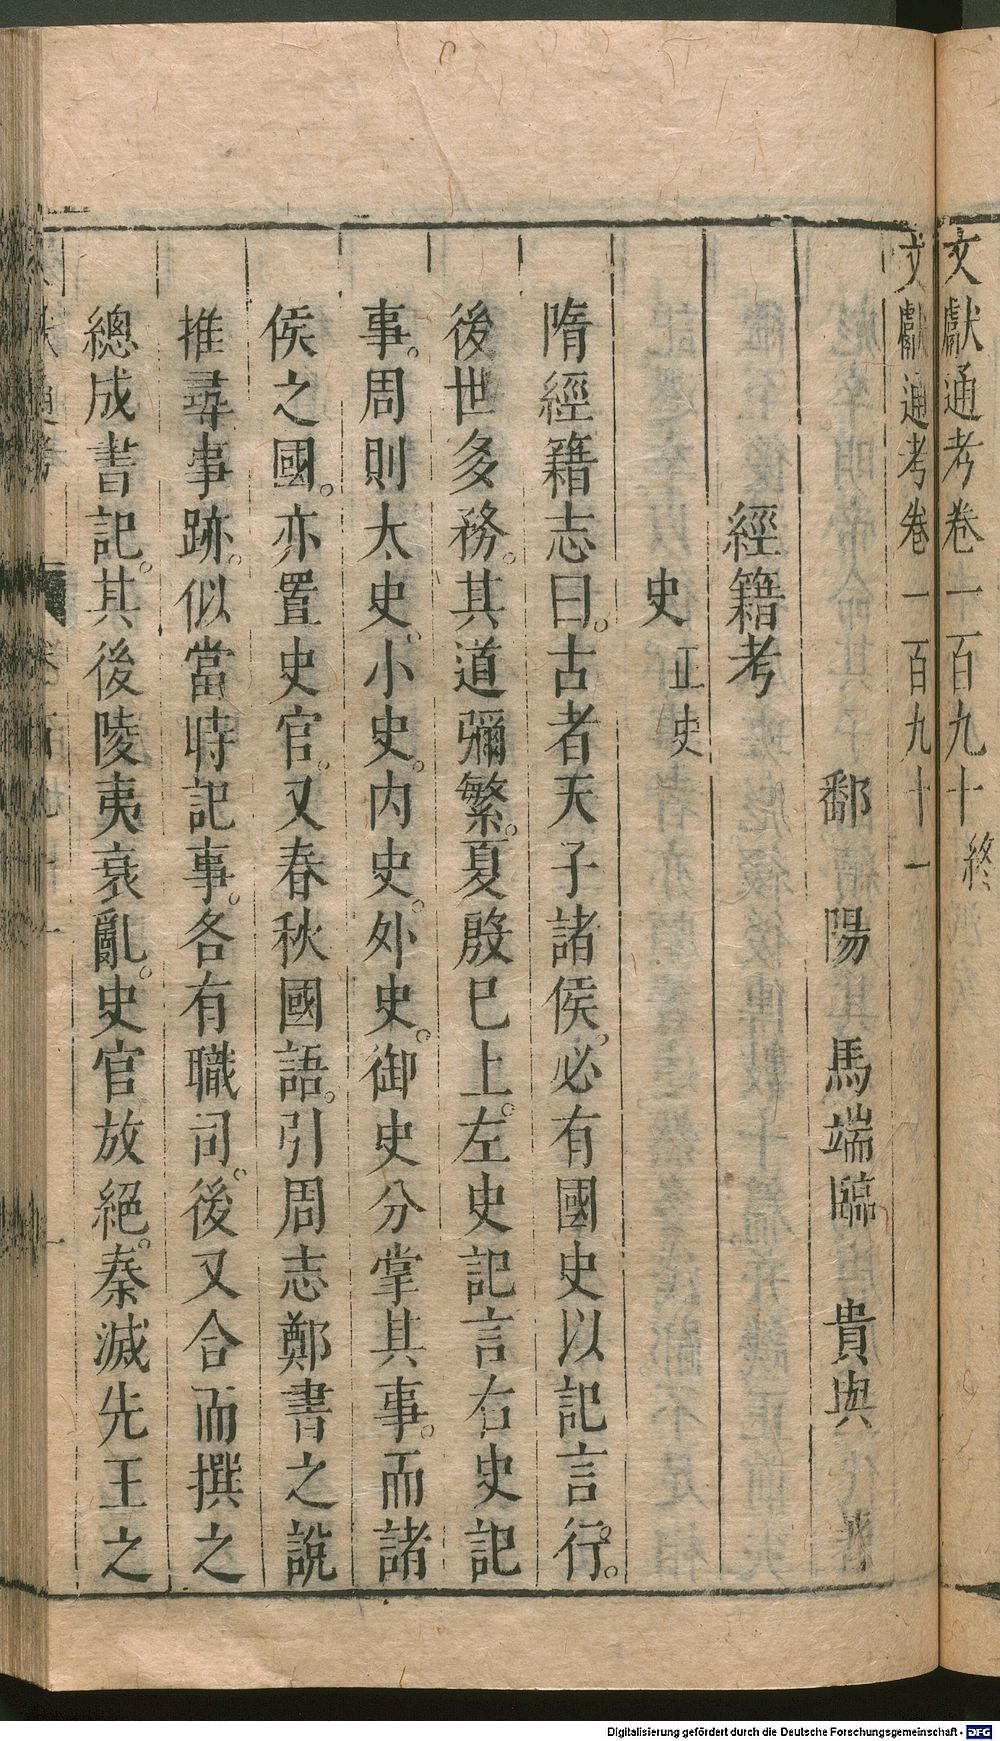 文獻通考卷一百九十終
文獻通考卷一百九十一
鄱陽馬端臨貴與著
經籍考
史 正史
隋經籍志曰。古者天子諸侯。必有國史以記言行。
後世多務。其道彌繁。夏殷巳上。左史記言右史記
事。周則太史。小史。內史。外史。御史分掌其事。而諸
侯之國。亦置史官。又春秋國語。引周志鄭書之說
推尋事跡。似當時記事。各有職司。後又合而撰之
總成書記。其後陵夷衰亂。史官放絕。秦滅先王之
Digitalisierung gefördert durch die Deutsche Forschungsgemeinschaft - DFG